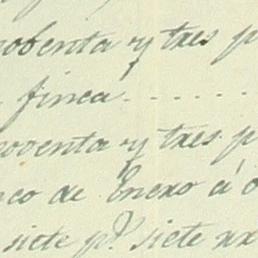 nobenta y tres p
finca
noventa y tres p
nco de Enero á o
siete ps. siete rr